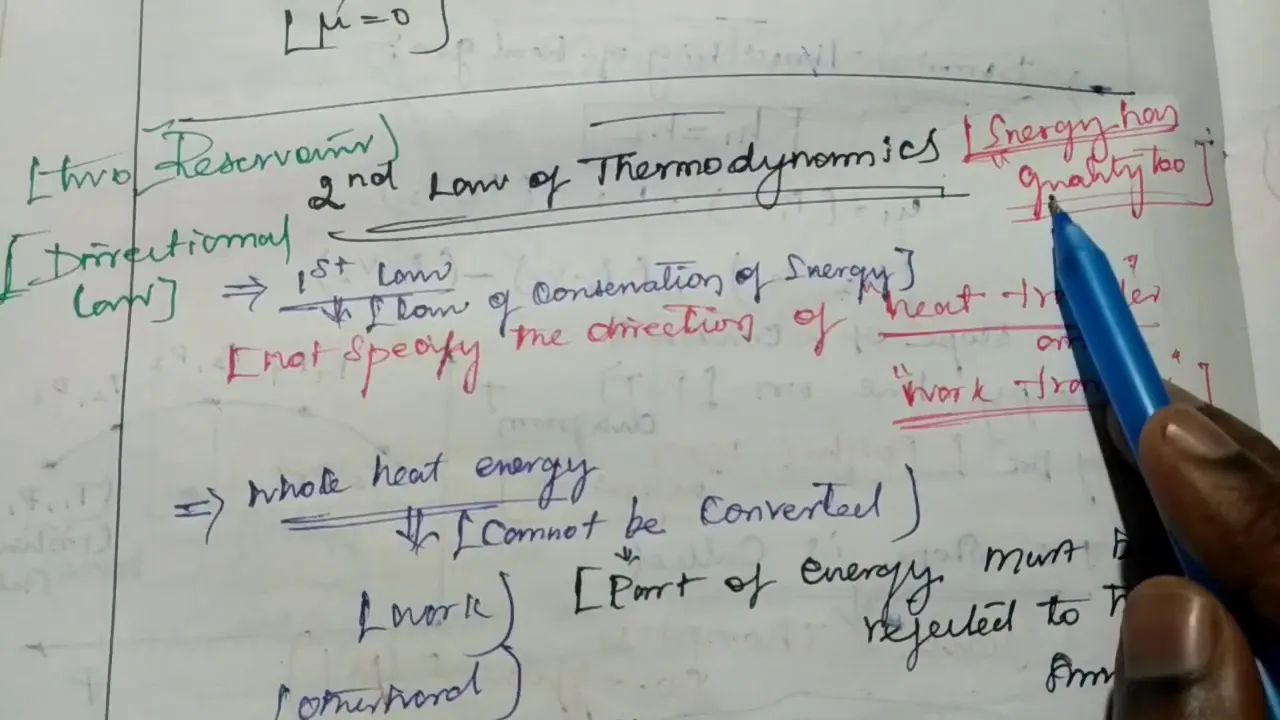 [μ=0]
[two Reservoir)
2nd Law of Thermodynamics
[Energy has
quality too]
[Directional
Law]
⇒ 1st Law
[Law of Conservation of Energy]
[not specify the direction of "heat
or
"work
⇒ whole heat energy
[Cannot be Converted)
[work)
[Part of energy must
rejected to
[otherhand)